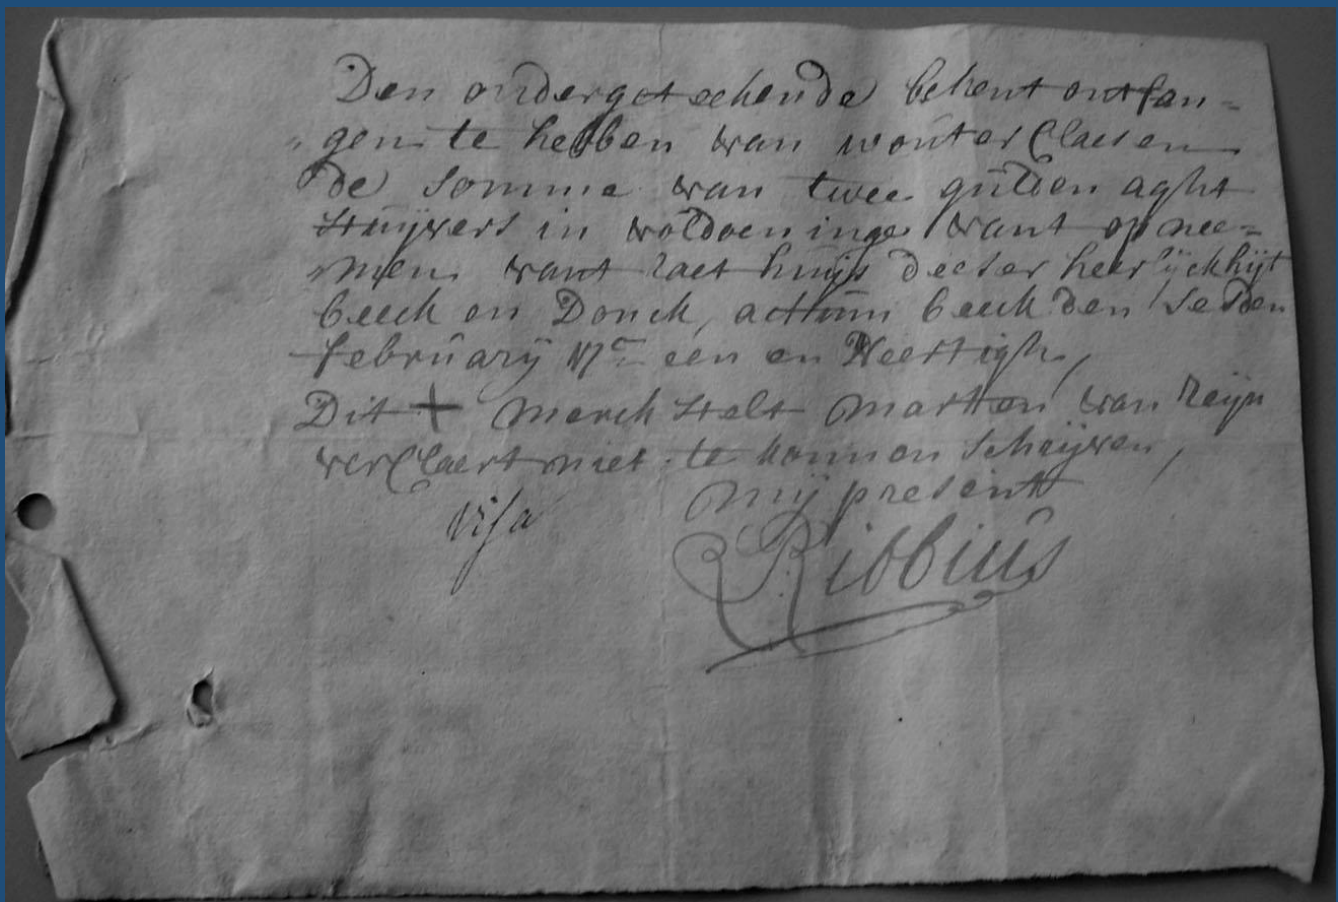 Den ondergeteekende bekent ontfan=
„gen te hebben van wouter Claesen
de somme van twee gulden aght
stuijvers in voldoeninge vant opnee=
men vant raet huijs deeser heerlijckhijt
beeck en Donck, actum beeck den sesden
february 17c een en Veertigh,
Dit + merck stelt marten van
verclaert niet te konnen schrijven,
mij present
visa
Ribbius